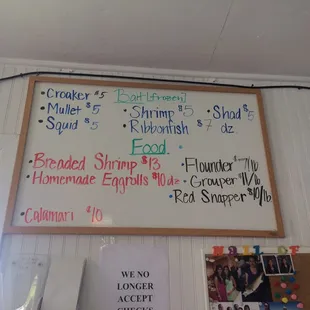 Bait (frozen)
Croaker $5
Mullet $5
Squid $5
Shrimp $5
Ribbonfish $7 dz
Shad $5
Food
Breaded Shrimp $13
Homemade Eggrolls $10 dz
Calamari $10
Flounder $7/lb
Grouper $11/lb
Red Snapper $10/lb
WE NO
LONGER
ACCEPT
CHECKS
WALL OF